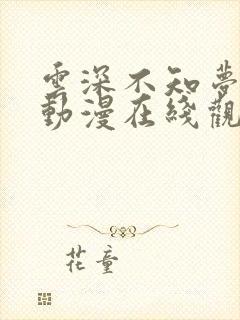 雲深不知夢
動漫在綫觀
花童